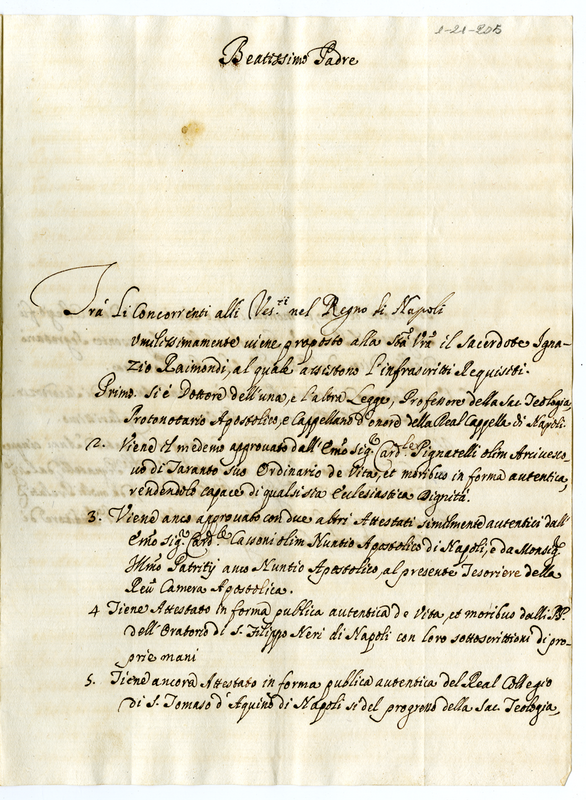 1-21-205
Beatissimo Padre
Trà Li Concorrenti alli Ves.ti nel Regno di Napoli
Umilissimamente viene proposto alla Stà Vrà il Sacerdote Igna-
zio Raimondi, al quale assistono l'infrascritti Requisiti.
Primo. Si é Dottore dell'una, e l'altra Legge, Professore della Sac. Teologia,
Protonotario Apostolico, e Cappellano d'onore della Real Cappella di Napoli
2. Viene il medemo approvato dall'Emo Sig.r Card.le Pignatelli olim Arcivesco-
vo di Taranto suo Ordinario de Vita, et moribus in forma autentica,
rendendolo capace di qualsisia Eclesiastica Dignità
3. Viene anco approvato con due altri Attestati similmente autentici dall'
Emo Sig.r Card.le Casoni olim Nuntio Apostolico di Napoli, e da Monsig.r
Illmo Patritij anco Nuntio Apostolico, al presente Tesoriere della
Reu Camera Apostolica.
4 Tiene Attestato in forma publica autentica de Vita, et moribus dalli PP.
dell'Oratorio di S. Filippo Neri di Napoli con loro sottoscrittioni di pro-
prie mani
5. Tiene ancora Attestato in forma publica autentica del Real Collegio
di S. Tomaso d'Aquino di Napoli si del progresso della Sac. Teologia,